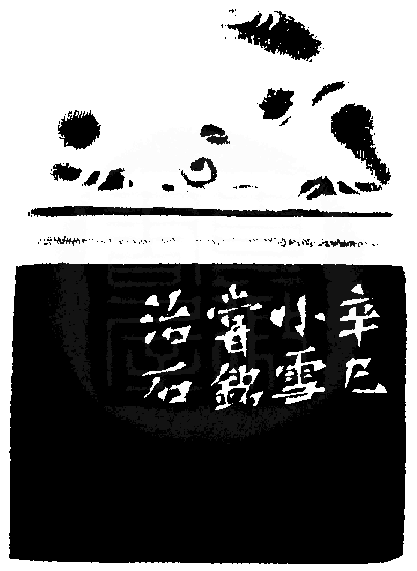 辛巳
小雪
嘗銘
治石